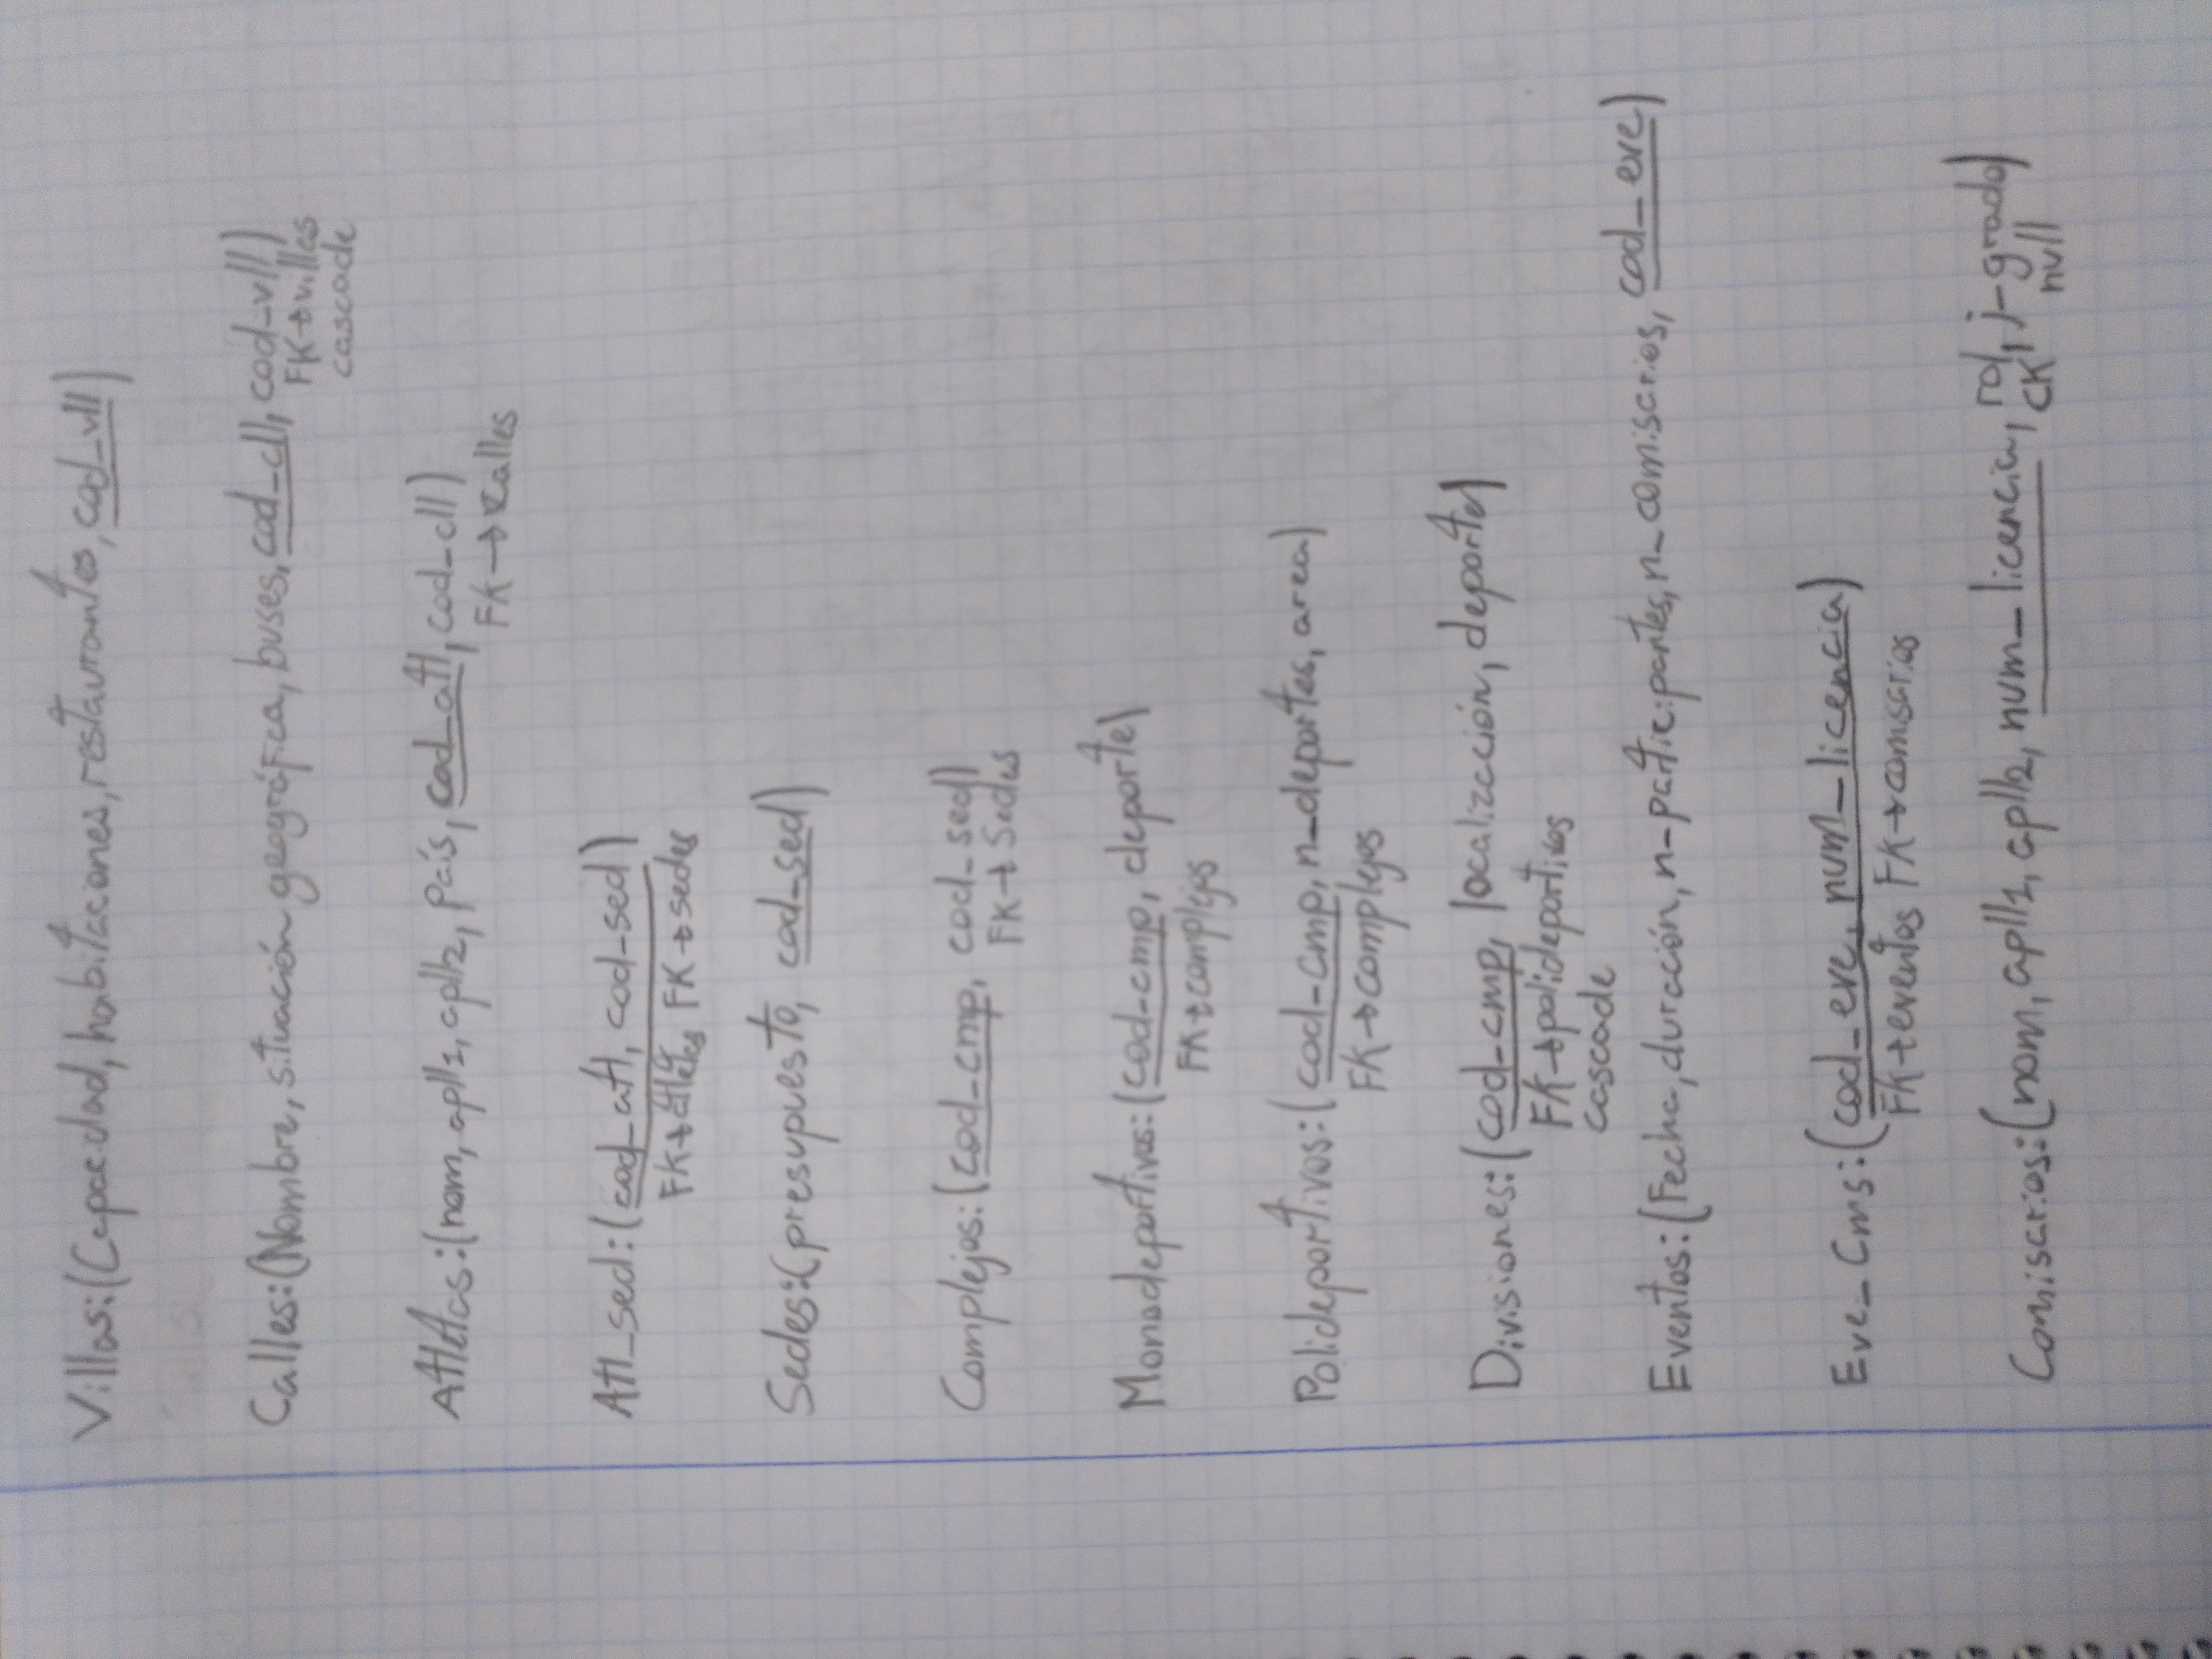 Villas:(Capacidad, habitaciones, restaurantes, cod_vll)
Calles:(Nombre, situación geográfica, buses, cod_cll, cod-vll)
FK→villas
cascade
Atletas:(nom, apll1, apll2, país, cod_atl, cod-cll)
FK→calles
Atl_sed:(cod_atl, cod-sed)
FK→atletas FK→sedes
Sedes:(presupuesto, cod_sed)
Complejos:(cod_cmp, cod-sed)
FK→Sedes
Monodeportivos:(cod-cmp, deporte)
FK→complejos
Polideportivos:(cod-cmp, n_deportes, area)
FK→complejos
Divisiones:(cod_cmp, localización, deporte)
FK→polideportivos
cascade
Eventos:(Fecha, duración, n-participantes, n_comisarios, cod_eve)
Eve_Cms:(cod_eve, num_licencia)
FK→eventos FK→comisarios
Comisarios:(nom, apll1, apll2, num_licencia, rol, j-grado)
CK null